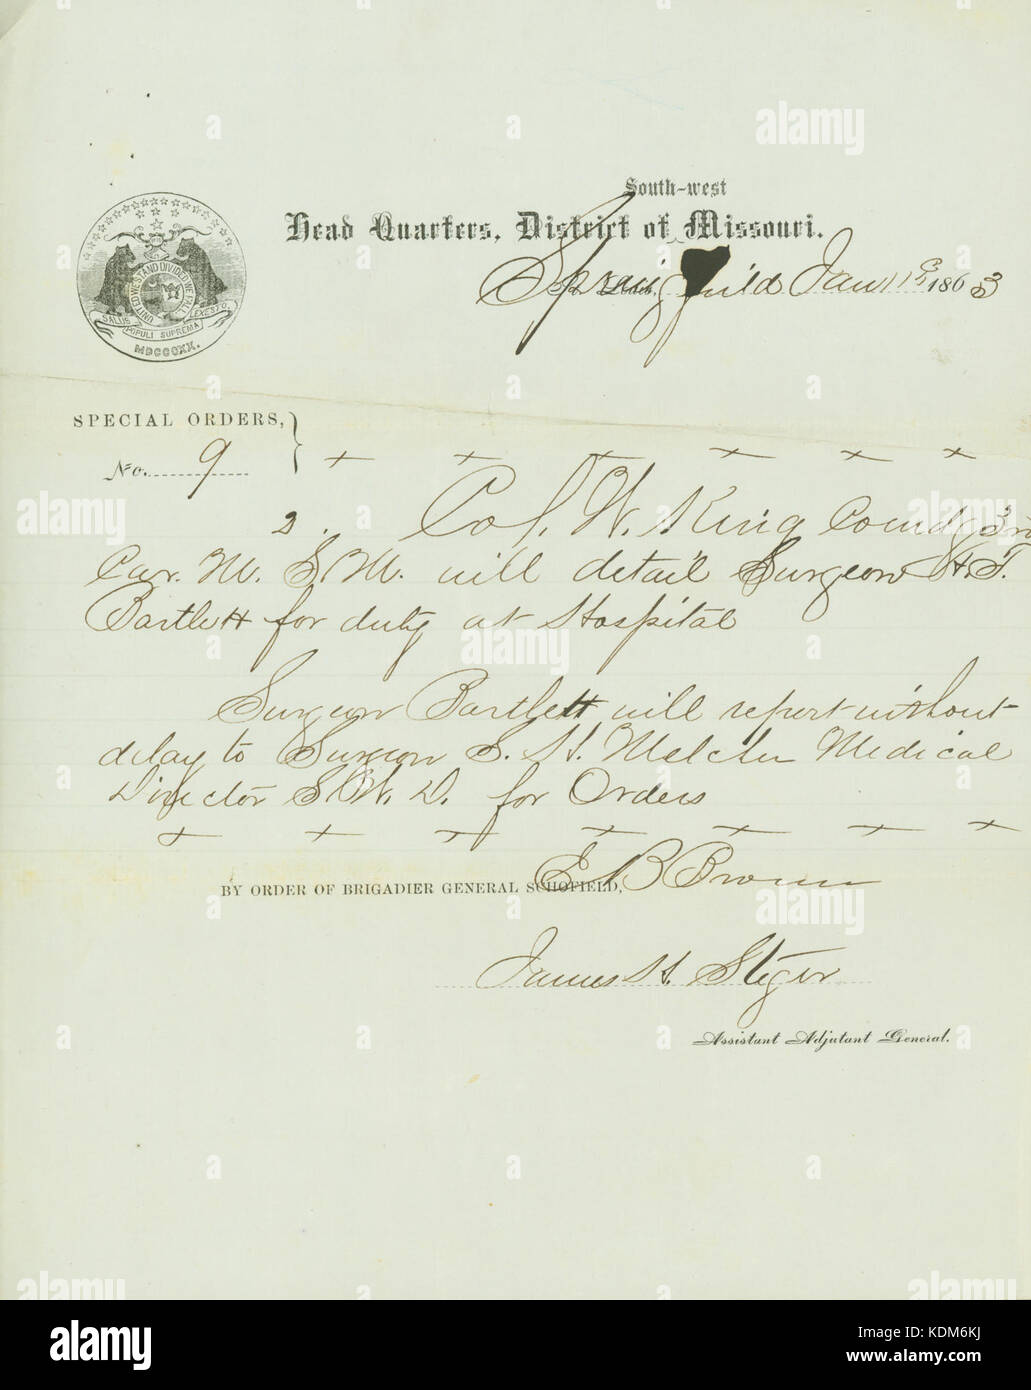 South-west
Head Quarters, District of Missouri.
Springfield Jan 11th 1863
UNITED WE STAND DIVIDED WE FALL
SALUS POPULI SUPREMA LEX ESTO
MDCCCXX.
SPECIAL ORDERS,
No. 9
2. Col. W. King Comdg 3rd
Cav. M. S. M. will detail Surgeon H. T.
Bartlett for duty at Hospital
Surgeon Bartlett will report without
delay to Surgeon S. H. Melcher Medical
Director S. W. D. for Orders
E B Brown
BY ORDER OF BRIGADIER GENERAL SCHOFIELD,
James H. Steger
Assistant Adjutant General.
alamy
Image ID: KDM6KJ
www.alamy.com